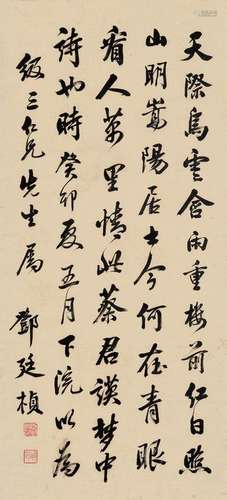 天際烏雲含雨重樓前紅日照
山明嵩陽居士今何在青眼
看人萬里情此蔡君謨夢中
詩也時癸卯夏五月下浣以為
級三仁兄先生屬
鄧廷楨